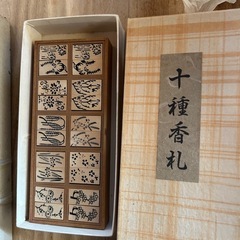 十種香札